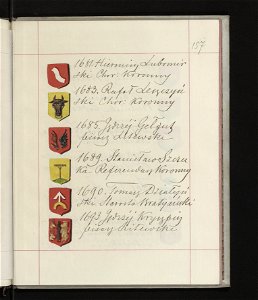 157
1681. Hieronim Lubomir
ski Chor Koronny
1683. Rafał Leszczyń
ski Chor Koronny
1685. Jędrzej Gełgut
pisarz Litewski
1689. Stanisław Szczu
ka Referendarz Koronny
1690. Tomasz Działyń
ski Starosta Kratyński
1693 Jędrzej Kryszpin
pisarz Litewski